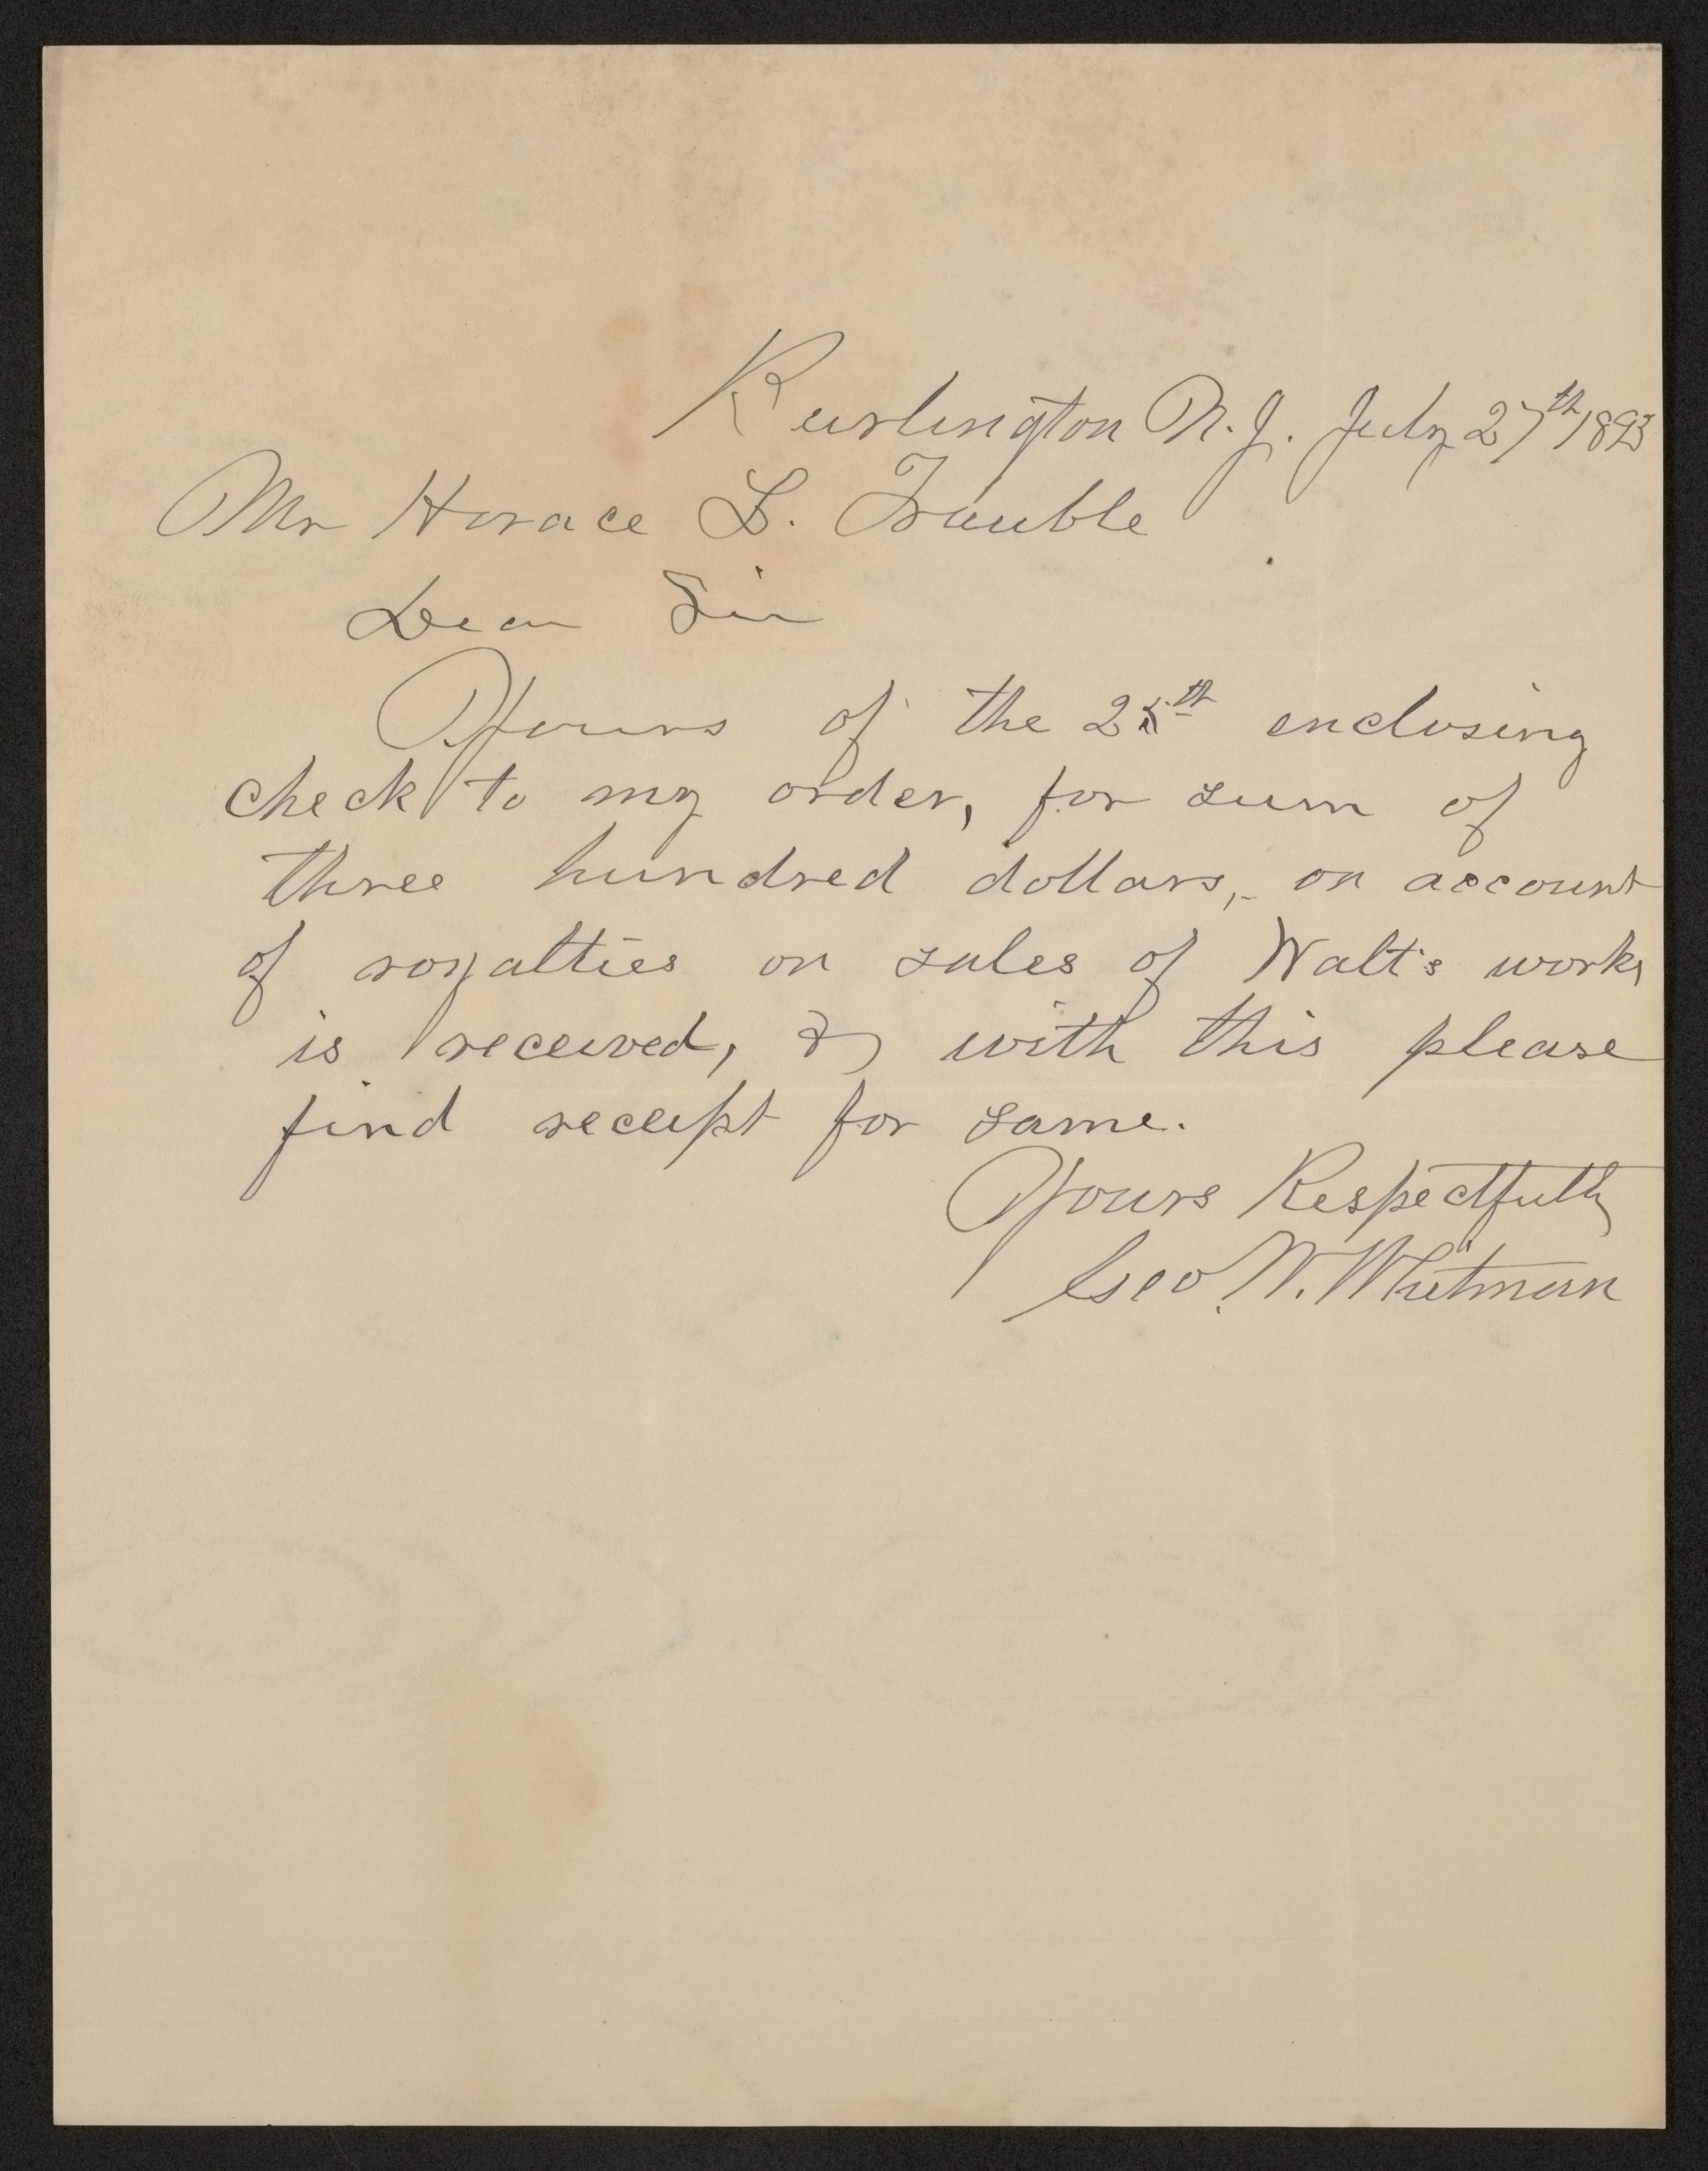 Burlington N.J. July 27th 1893
Mr Horace L. Trauble
Dear Sir
Yours of the 25th enclosing
check to my order, for sum of
three hundred dollars, on account
of royalties on sales of Walt's works
is received, & with this please
find receipt for same.
Yours Respectfully
Geo. W. Whitman